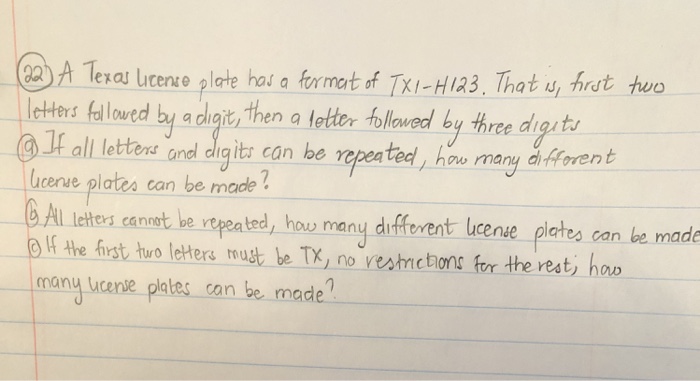 (22) A Texas license plate has a format of TX1-H123. That is, first two
letters followed by a digit, then a letter followed by three digits
(a) If all letters and digits can be repeated, how many different
license plates can be made?
(b) All letters cannot be repeated, how many different license plates can be made
(c) If the first two letters must be TX, no restrictions for the rest; how
many license plates can be made?